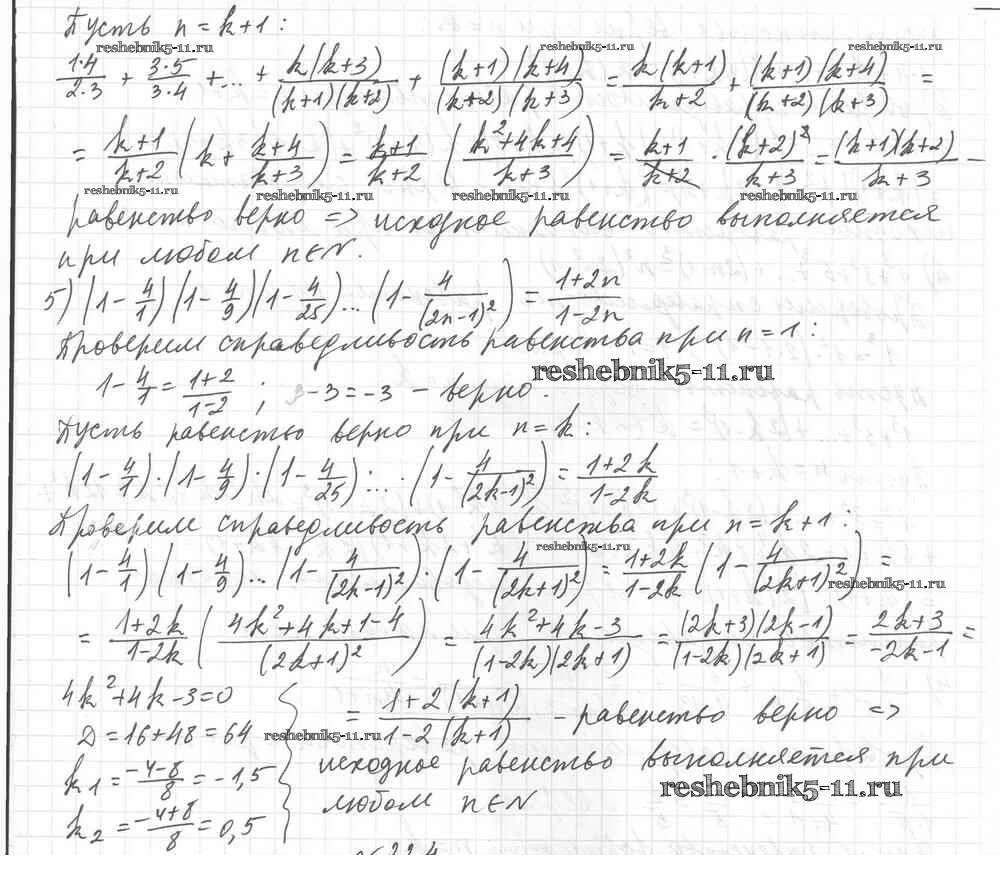 Пусть n = k+1 :
reshebnik5-11.ru reshebnik5-11.ru reshebnik5-11.ru
1·4/2·3 + 3·5/3·4 +...+ k(k+3)/(k+1)(k+2) + (k+1)(k+4)/(k+2)(k+3) = k(k+1)/k+2 + (k+1)(k+4)/(k+2)(k+3) =
= k+1/k+2 (k + k+4/k+3) = k+1/k+2 (k²+4k+4/k+3) = k+1/k+2 · (k+2)²/k+3 = (k+1)(k+2)/k+3 –
reshebnik5-11.ru reshebnik5-11.ru reshebnik5-11.ru reshebnik5-11.ru
равенство верно => исходное равенство выполняется
при любом n∈N.
5) (1 - 4/1)(1 - 4/9)(1 - 4/25)...(1 - 4/(2n-1)²) = 1+2n/1-2n
Проверим справедливость равенства при n = 1 :
reshebnik5-11.ru
1 - 4/1 = 1+2/1-2 ; -3 = -3 – верно.
Пусть равенство верно при n = k :
(1 - 4/1)·(1 - 4/9)·(1 - 4/25)·...·(1 - 4/(2k-1)²) = 1+2k/1-2k
Проверим справедливость равенства при n = k+1 :
reshebnik5-11.ru
(1 - 4/1)(1 - 4/9)...(1 - 4/(2k-1)²)·(1 - 4/(2k+1)²) = 1+2k/1-2k (1 - 4/(2k+1)²) =
reshebnik5-11.ru
= 1+2k/1-2k (4k²+4k+1-4/(2k+1)²) = 4k²+4k-3/(1-2k)(2k+1) = (2k+3)(2k-1)/(1-2k)(2k+1) = 2k+3/-2k-1 =
4k²+4k-3=0
D = 16+48 = 64
k1 = -4-8/8 = -1,5
k2 = -4+8/8 = 0,5
= 1+2(k+1)/1-2(k+1) – равенство верно =>
reshebnik5-11.ru
исходное равенство выполняется при
любом n∈N
reshebnik5-11.ru